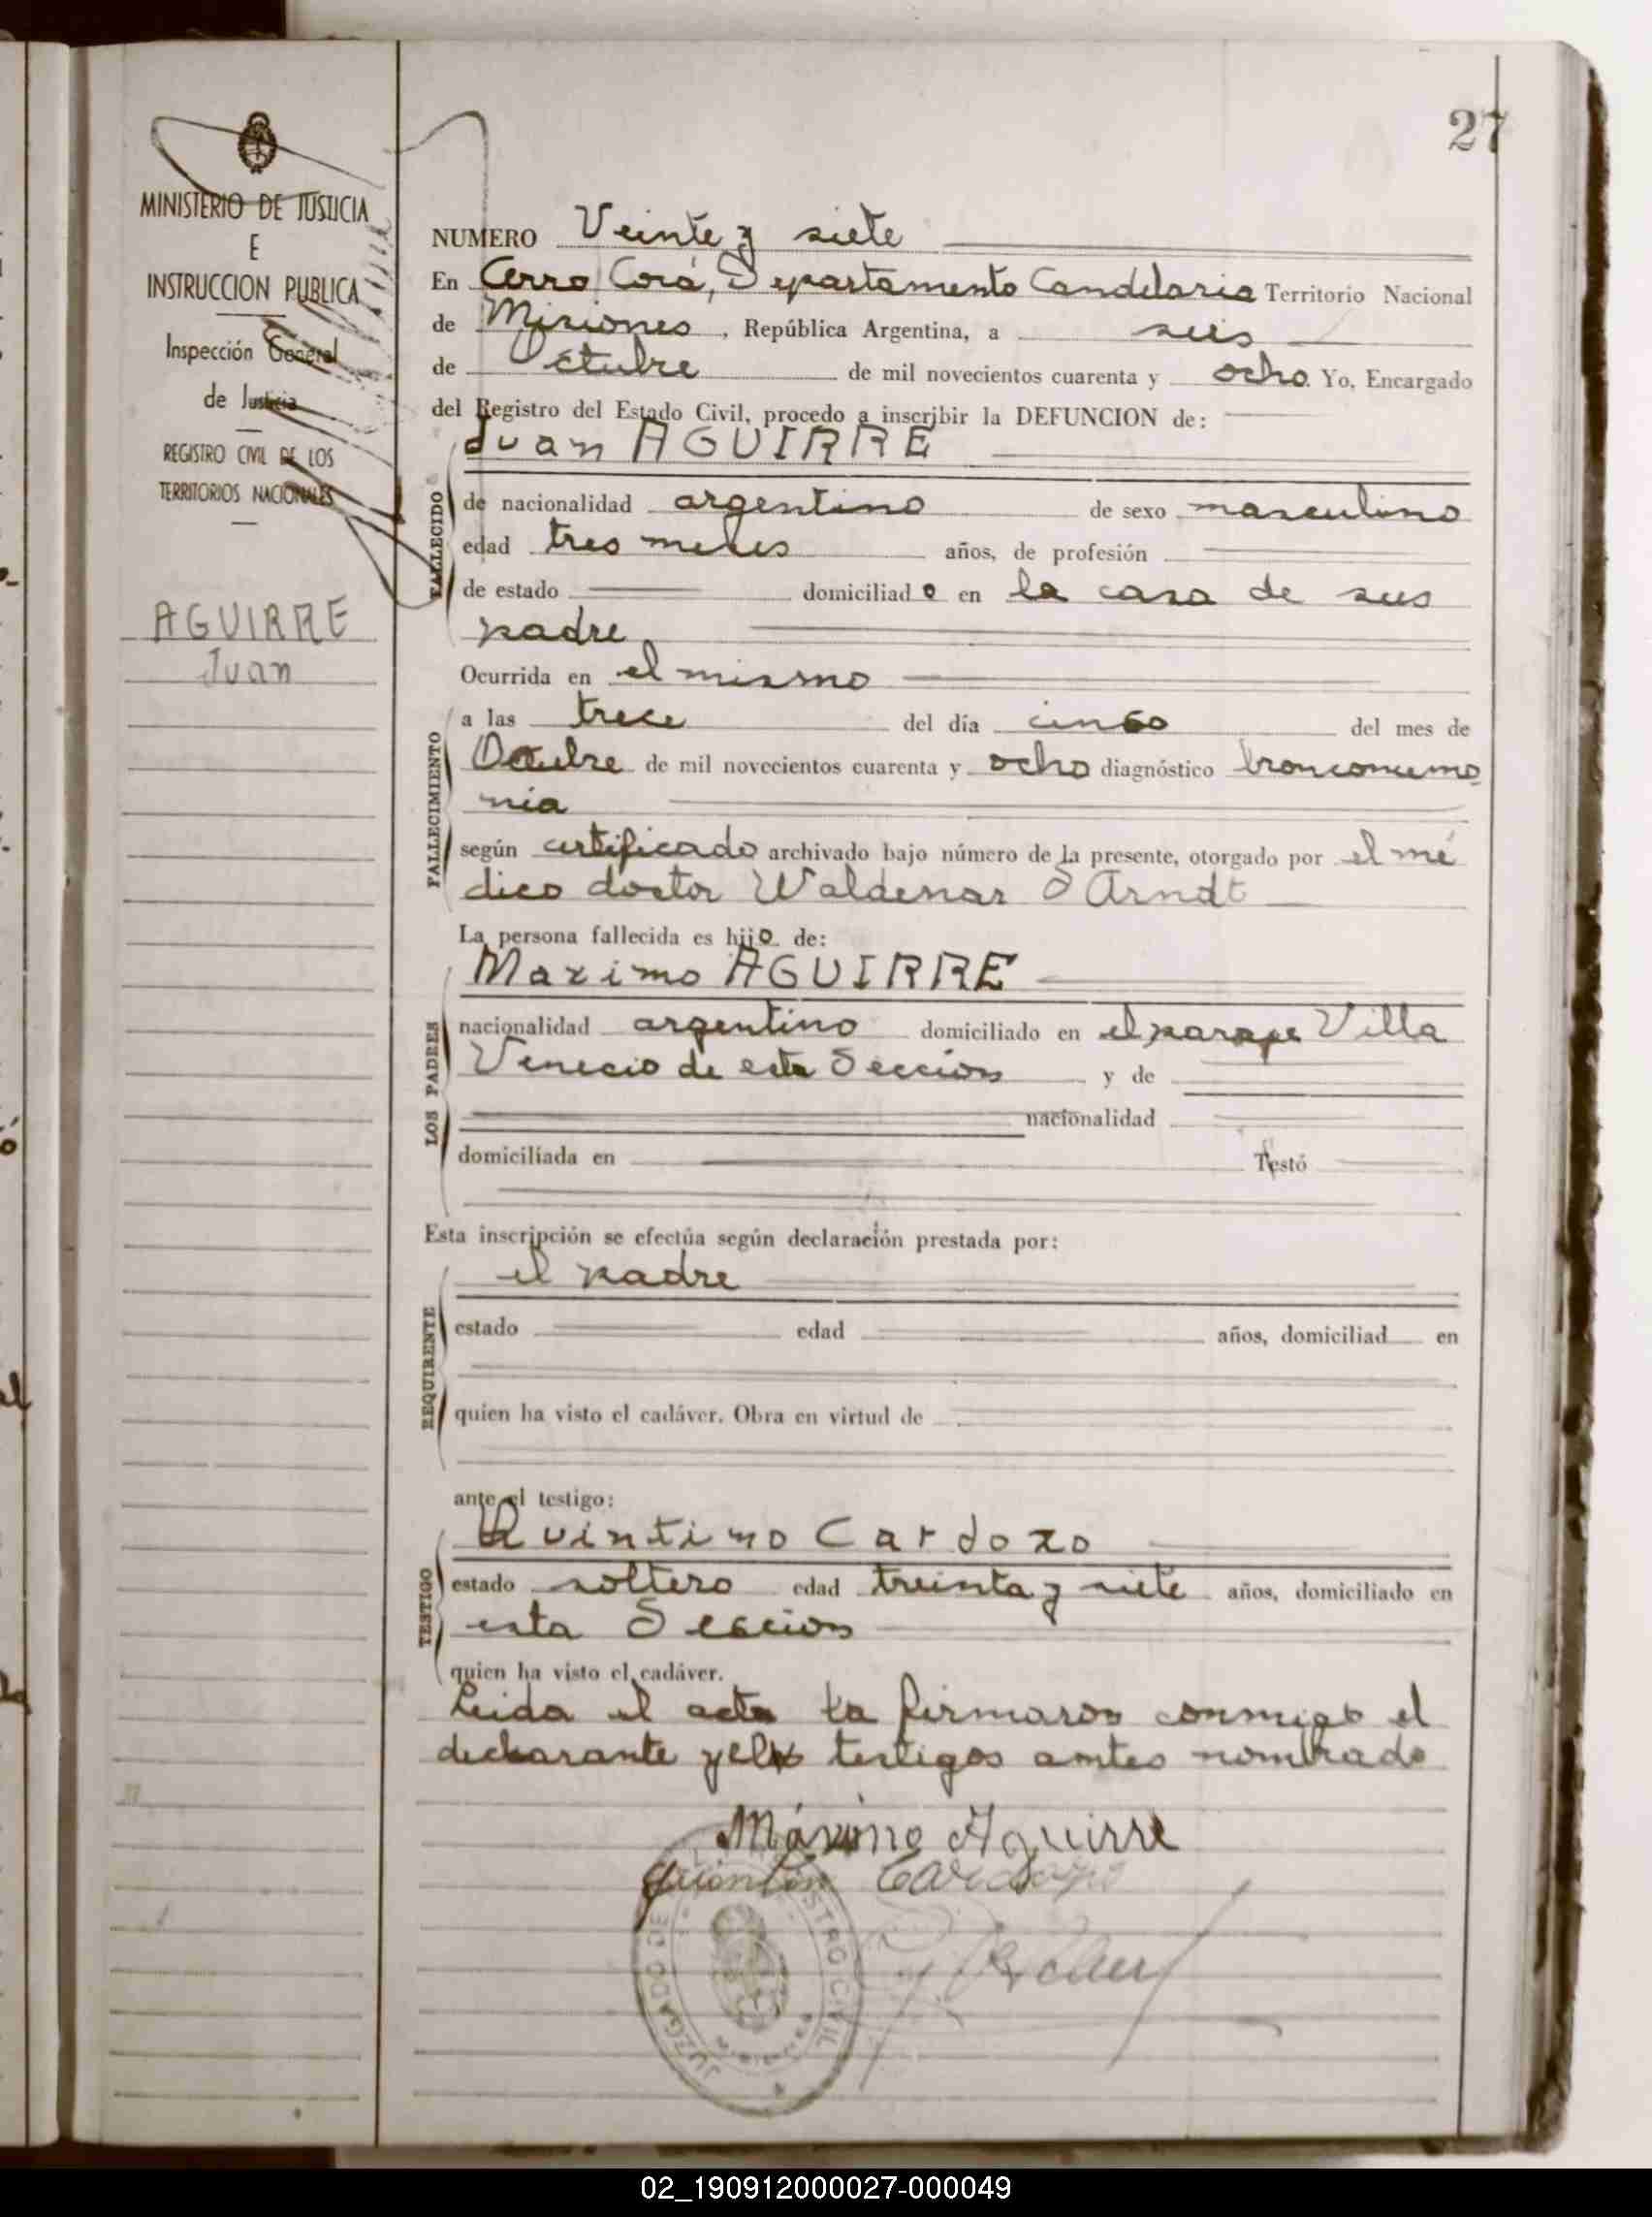 27
MINISTERIO DE JUSTICIA
E
INSTRUCCION PUBLICA
Inspección General
de Justicia
REGISTRO CIVIL DE LOS
TERRITORIOS NACIONALES
AGUIRRE
Juan
NUMERO Veinte y siete
En Cerro Corá, Departamento Candelaria Territorio Nacional
de Misiones, República Argentina, a seis
de Octubre de mil novecientos cuarenta y ocho. Yo, Encargado
del Registro del Estado Civil, procedo a inscribir la DEFUNCION de:
Juan AGUIRRE
FALLECIDO
de nacionalidad argentino de sexo masculino
edad tres meses años, de profesión
de estado domiciliado en la casa de sus
padre
Ocurrida en el mismo
FALLECIMIENTO
a las trece del día cinco del mes de
Octubre de mil novecientos cuarenta y ocho diagnóstico bronconeumo
nia
según certificado archivado bajo número de la presente, otorgado por el mé
dico doctor Waldemar O Arndt
La persona fallecida es hijo de:
LOS PADRES
Maximo AGUIRRE
nacionalidad argentino domiciliado en el paraje Villa
Venecio de esta Sección y de
nacionalidad
domiciliada en Testó
Esta inscripción se efectúa según declaración prestada por:
REQUIRENTE
el padre
estado edad años, domiciliad en
quien ha visto el cadáver. Obra en virtud de
ante el testigo:
TESTIGO
Quintino Cardozo
estado soltero edad treinta y siete años, domiciliado en
esta Sección
quien ha visto el cadáver.
Leida el acta la firmaron conmigo el
declarante y el testigos antes nombrado
Máximo Aguirre
Quintin Cardozo
JUZGADO DE REGISTRO CIVIL
02_190912000027-000049